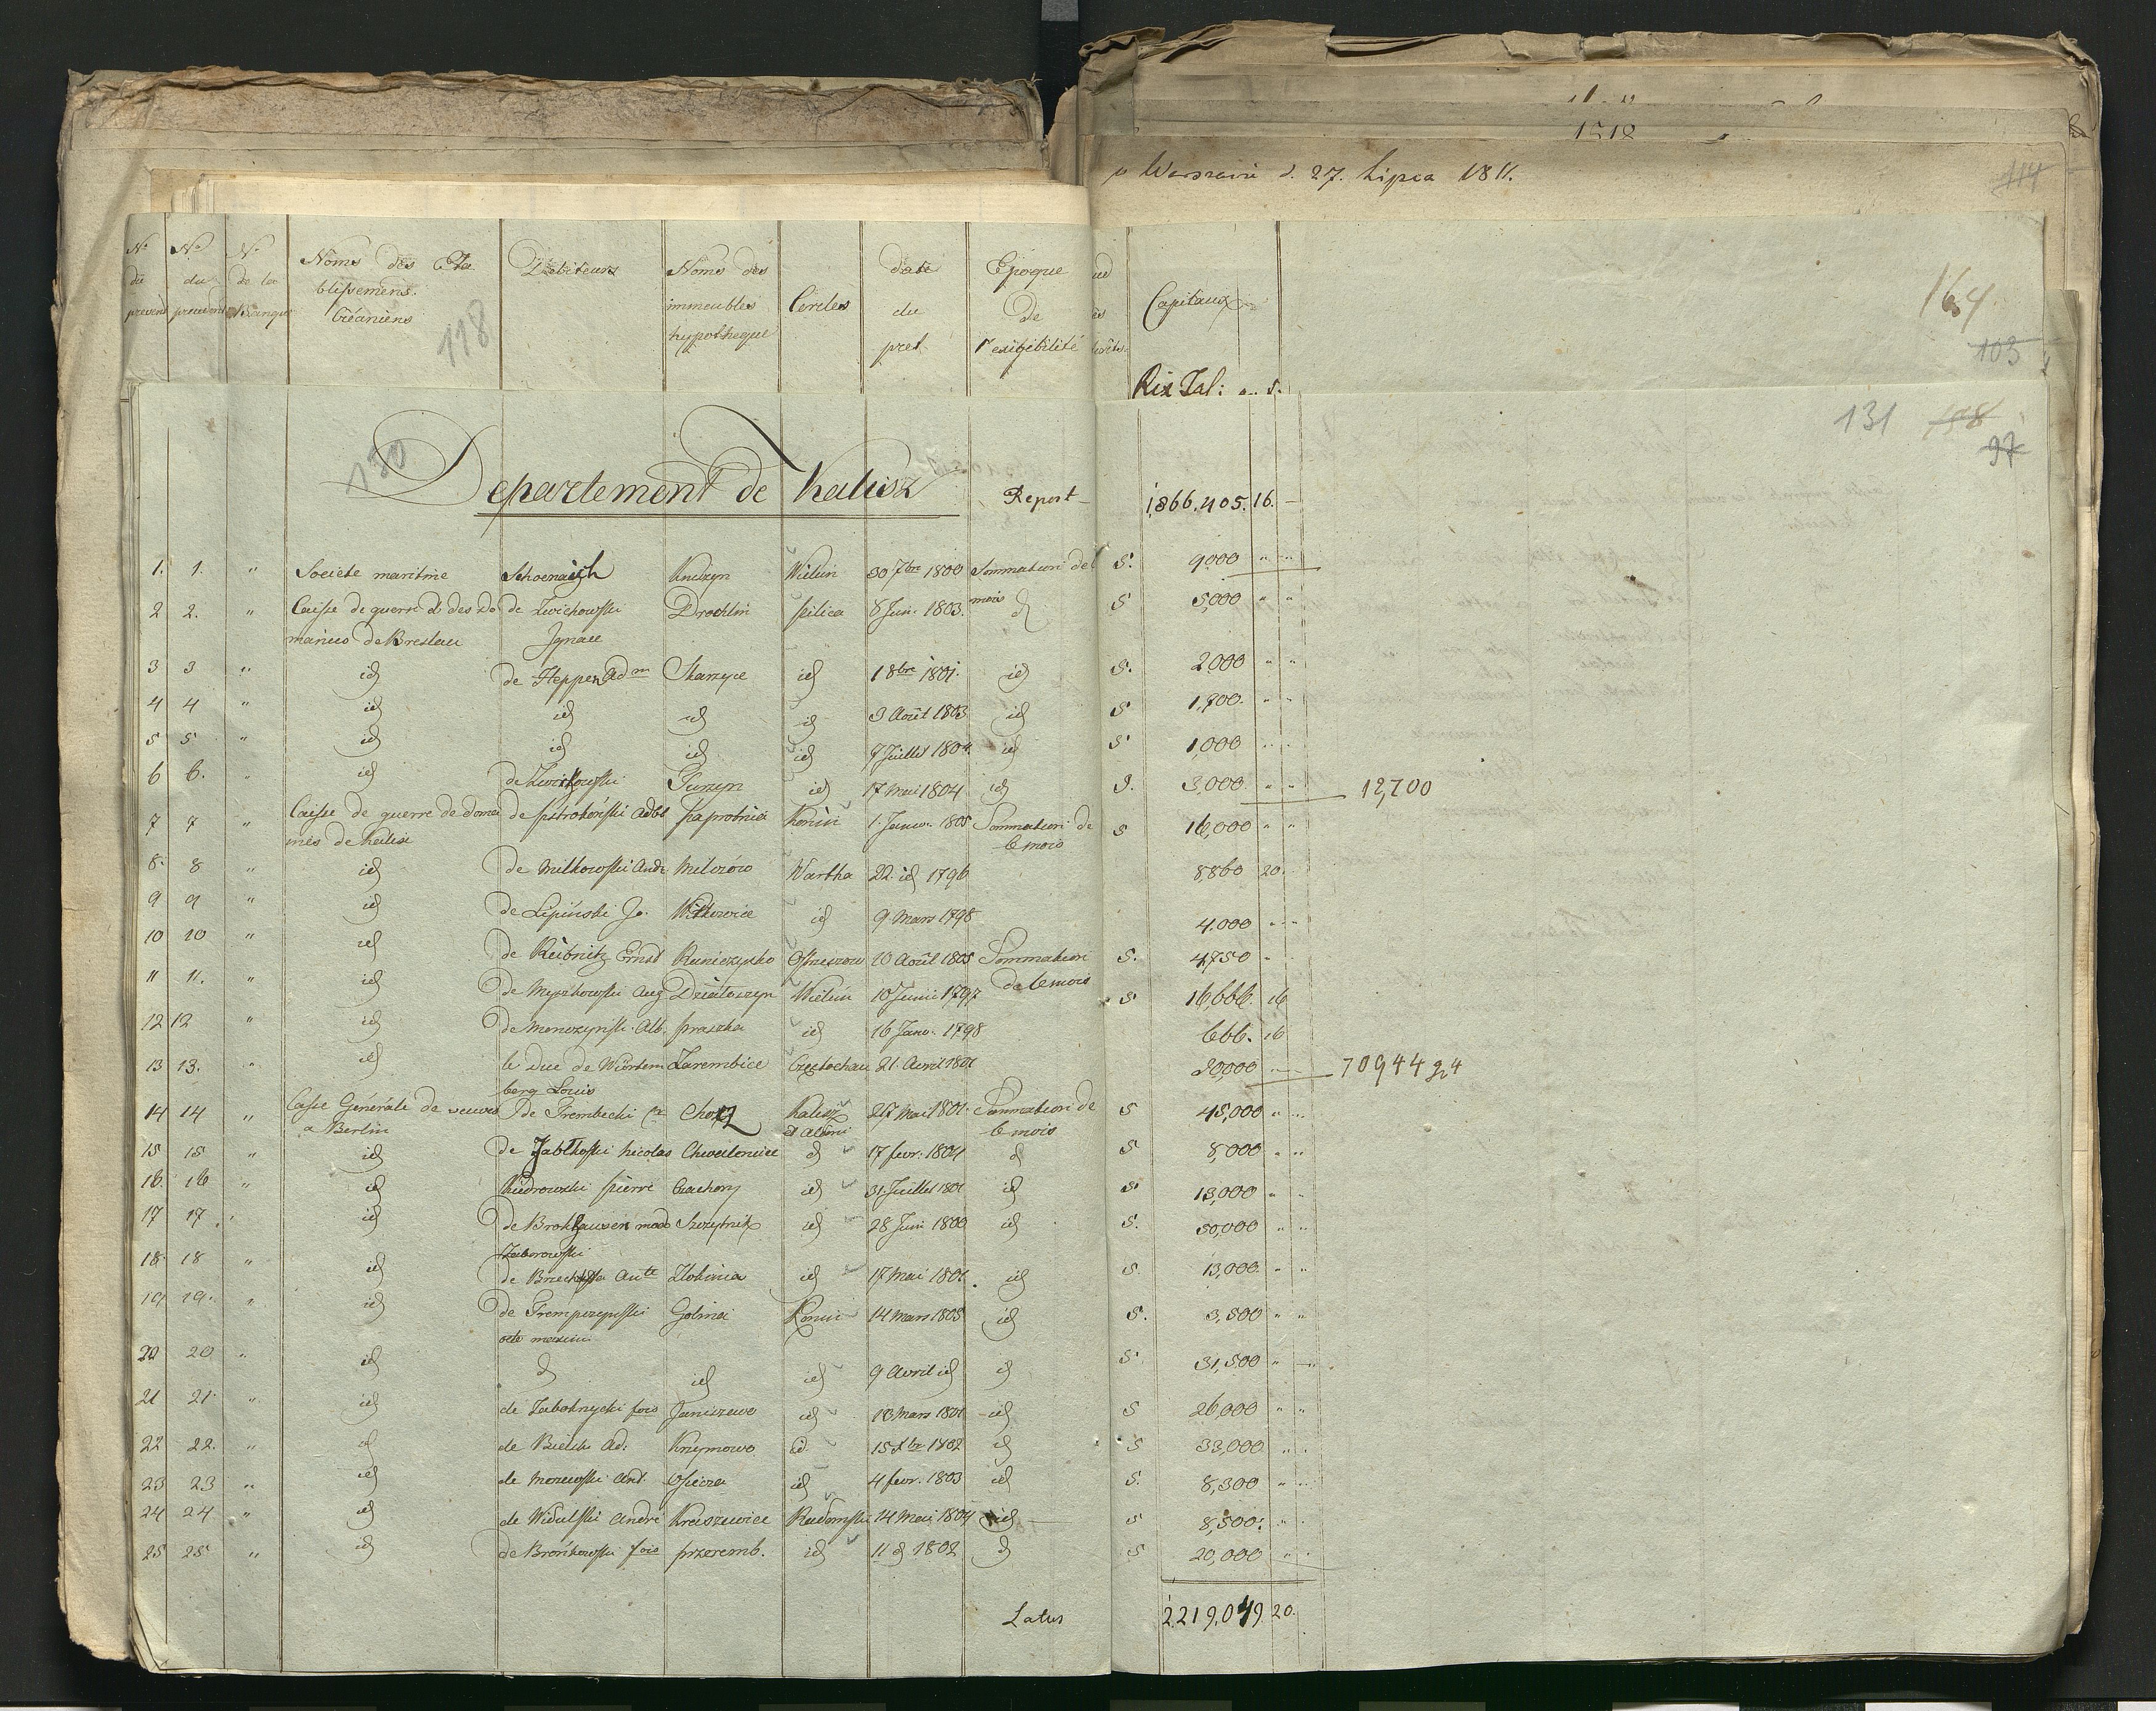 w Warszawie d. 27. Lipca 1811.
114
1812
164
103
118
No du present
No du precedent
No de la Banque
Noms des Eta blissemens Créanciers
Debiteurs
Noms des immeubles hypotheque
Cercles
date du pret
Epoque de l'exigibilité
Capitaux
Rix Tal:
131 97
130
Departement de Kalisz
Report 1,866.405. 16. —
1. 1. " Societé maritime Schoenaich Wielun 30 7bre 1800 Sommation de 6 mois 5. 9000 " "
2 2. " Caisse de guerre et des Do maines de Breslau de Zwichowski Ignace Drochlin Pilica 8 Juin. 1803. id 5 5,000 " "
3 3 " id de Heppen Adm Skarzyce id 1 8bre 1801. id 5. 2000 " "
4 4 " id id id id 9 Août 1803 id 5 1,700. " "
5 5 " id id id id 7 Juillet 1804. id 5 1,000 " "
6 6. " id id 17 Mai 1804 id 5. 3,000 " " 12,700
7 7 " Caisse de guerre de domai nes de Kalisz de Pstrokoński Adbt Paprotnia Konin 1. Janv. 1805 Sommation de 6 mois 5 16,000 " "
8. 8 " id de Milkowski And. Wartha 22. id 1796 8,860 20.
9 9 " id de Lipinski Jo. Witkowice id 9 Mars 1798 4.000 " "
10 10 " id de Reibnitz Ernst Ostrzeszow 20 Août 1805 Sommation de 6 mois 5. 4,750 "
11 11. " id de Myszkowski Aug Dzietrzyn Wielun 10 Junii 1797 5 16,666. 16
12 12 " id Alb. Praszka id 16 Janv. 1798 666. 16
13 13. " id le Duc de Würtem berg Louis Zarembice Częstochau 21. Avril 1801 20,000 70944 24
14 14 " Caisse Générale de veuves a Berlin de Trembecki Kalisz 27 Mai 1801. Sommation de 6 mois 5 45,000 " "
15 15 " id de Jablkoski nicolas id 17 fevr. 1804 id 5 8,000 " "
16. 16 " id Kiedrowski Pierre Czachory id 31. Juillet 1801 id 5. 13,000 " "
17 17 " id de Brokhausen modo Zaborowski Szczytnik id 28 Juin 1800 id 5. 50,000 " "
18. 18 " id Ante id 17 Mai 1801. id 5. 13,000. " "
19 19. " id Golina Konin 14 Mars 1805 id 5. 3,500 " "
20 20 " id id id id 9 Avril id id 5. 31,500 "
21 21. " id de Zabokrzycki fois Janiszewo id 18 Mars 1801 id 5 26,000 " "
22 22. " id de Bielicki Ad: Krzymowo id. 15 8br 1802 id 5 33,000 " "
23 23 " id de Morawski Ant. Osiecza id 4 fevr. 1803 id 5. 8,300 " "
24 24 " id de Widulski André Radomski 14 Mai 1804 id 5 8,500. " "
25 25 " id de Brońikowski fois przeremb. id 11 id 1802 id 5 20,000 " "
Latus 2.219,049. 20.